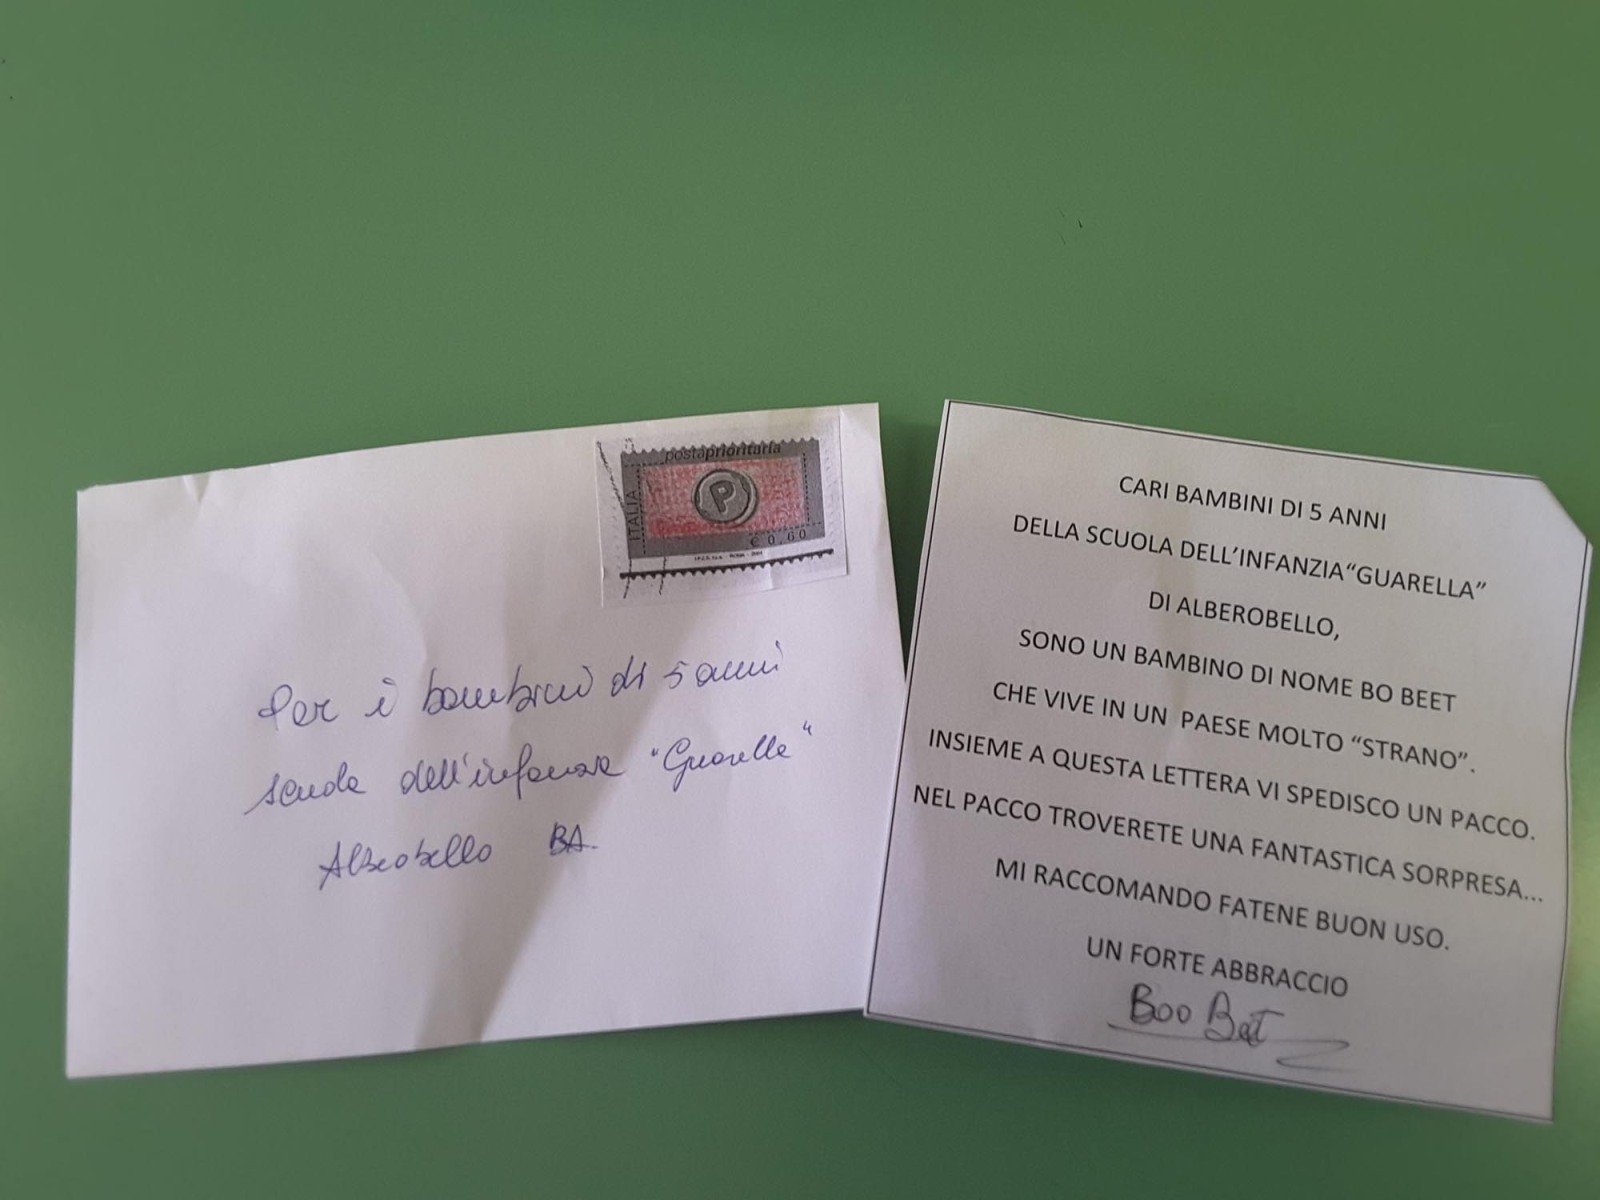 postaprioritaria
ITALIA
P
€ 0.60
Per i bambini di 5 anni
scuola dell'infanzia "Guarella"
Alberobello BA
CARI BAMBINI DI 5 ANNI
DELLA SCUOLA DELL'INFANZIA“GUARELLA”
DI ALBEROBELLO,
SONO UN BAMBINO DI NOME BO BEET
CHE VIVE IN UN PAESE MOLTO “STRANO”.
INSIEME A QUESTA LETTERA VI SPEDISCO UN PACCO.
NEL PACCO TROVERETE UNA FANTASTICA SORPRESA...
MI RACCOMANDO FATENE BUON USO.
UN FORTE ABBRACCIO
Boo Bet